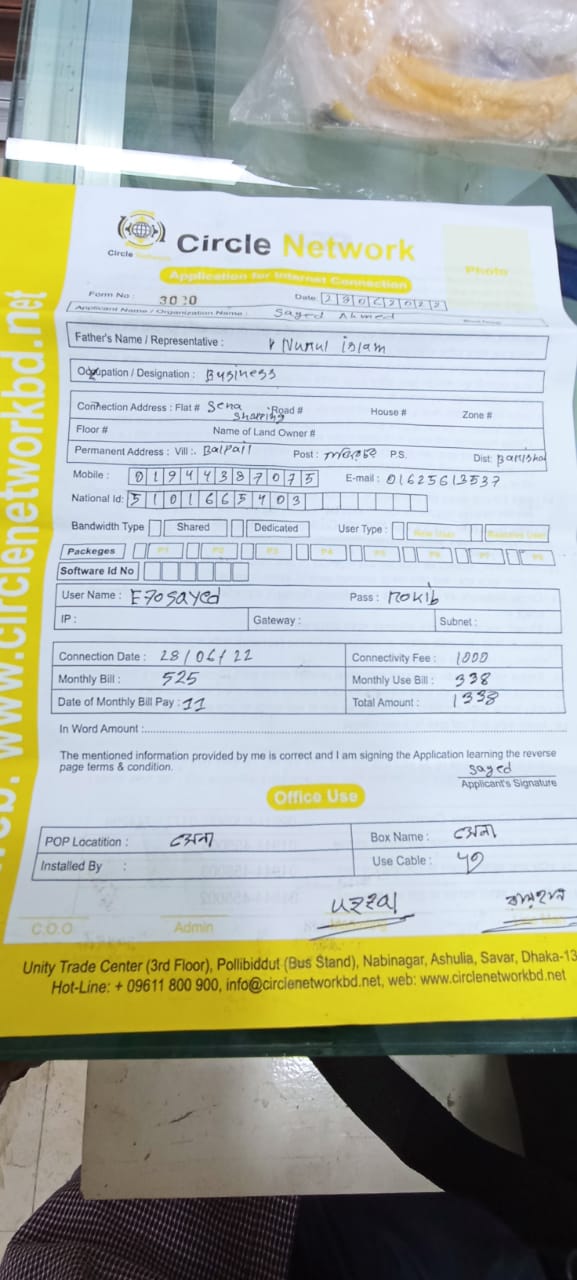 Circle Network
Circle Network
Application for Internet Connection
Photo
Form No : 3020
Date: 28062022
Applicant Name / Organization Name : Sayed Ahmed
Father's Name / Representative : Nurul islam
Occupation / Designation : Business
Connection Address : Flat # Sena Shopping Road # House # Zone #
Floor # Name of Land Owner #
Permanent Address : Vill :. Post : P.S. Dist:
Mobile : 01944387075 E-mail : 01625613537
National Id: 5101665403
Bandwidth Type Shared Dedicated User Type : New User
Packeges P1 P2 P3 P4 P5 P6 P7 P8
Software Id No
User Name : E70sayed Pass : rokib
IP : Gateway : Subnet :
Connection Date : 28/06/22 Connectivity Fee : 1000
Monthly Bill : 525 Monthly Use Bill : 338
Date of Monthly Bill Pay : 11 Total Amount : 1338
In Word Amount :
The mentioned information provided by me is correct and I am signing the Application learning the reverse
page terms & condition.
sayed
Applicant's Signature
Office Use
POP Locatition : সেনা Box Name : সেনা
Installed By : Use Cable :
C.O.O Admin
Unity Trade Center (3rd Floor), Pollibiddut (Bus Stand), Nabinagar, Ashulia, Savar, Dhaka-13
Hot-Line: + 09611 800 900, info@circlenetworkbd.net, web: www.circlenetworkbd.net
www.circlenetworkbd.net